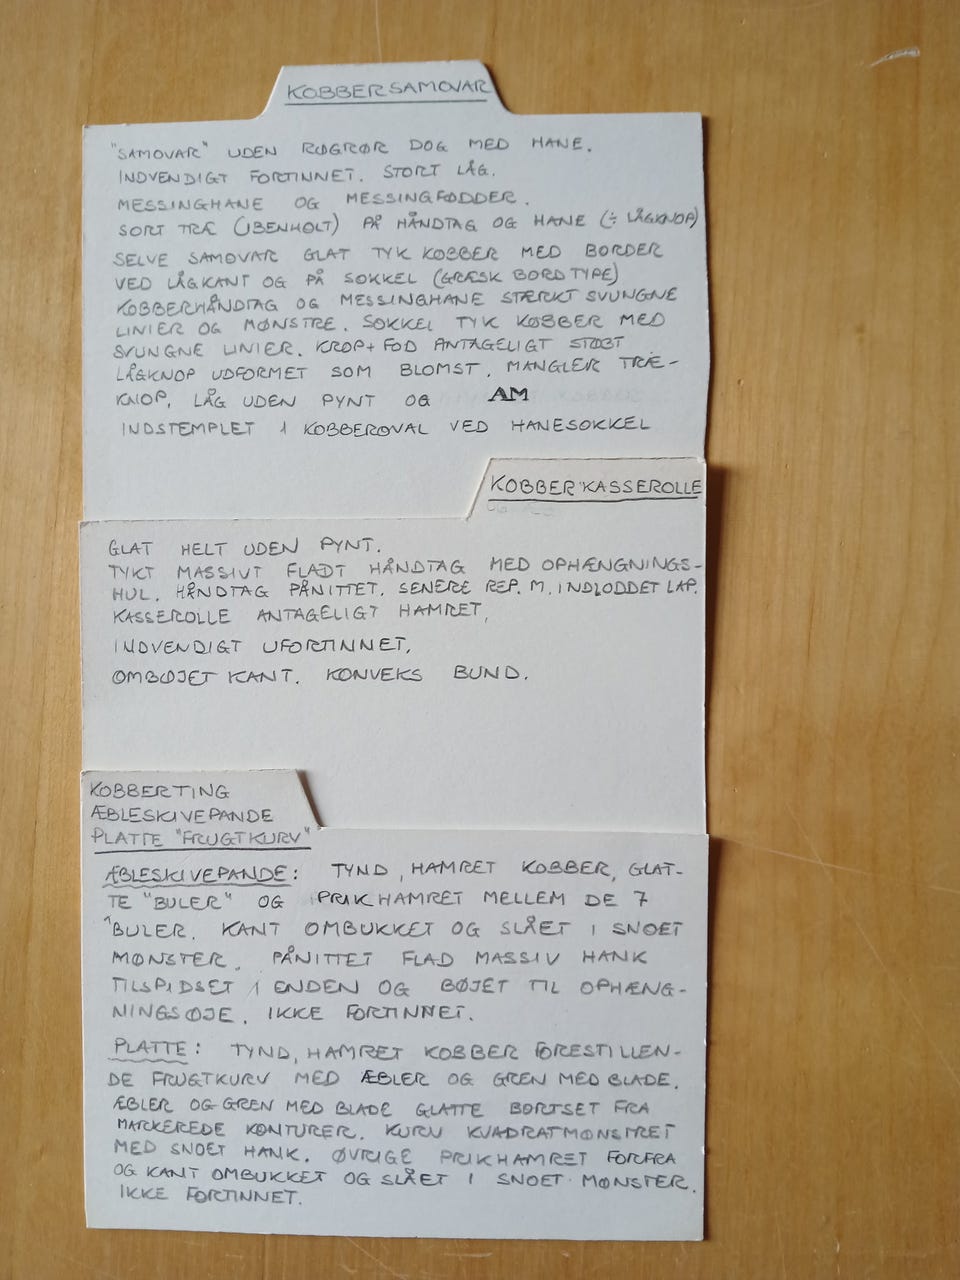 KOBBERSAMOVAR
"SAMOVAR" UDEN RØGRØR DOG MED HANE.
INDVENDIGT FORTINNET. STORT LÅG.
MESSINGHANE OG MESSINGFØDDER.
SORT TRÆ (IBENHOLT) PÅ HÅNDTAG OG HANE (÷ LÅGKNOP)
SELVE SAMOVAR GLAT TYK KOBBER MED BORDER
VED LÅGKANT OG PÅ SOKKEL (GRÆSK BORD TYPE)
KOBBERHÅNDTAG OG MESSINGHANE STÆRKT SVUNGNE
LINIER OG MØNSTRE. SOKKEL TYK KOBBER MED
SVUNGNE LINIER. KROP + FOD ANTAGELIGT STØBT
LÅGKNOP UDFORMET SOM BLOMST. MANGLER TRÆ-
KNOP. LÅG UDEN PYNT OG AM
INDSTEMPLET I KOBBEROVAL VED HANESOKKEL
KOBBERKASSEROLLE
GLAT HELT UDEN PYNT.
TYKT MASSIVT FLADT HÅNDTAG MED OPHÆNGNINGS-
HUL. HÅNDTAG PÅNITTET. SENERE REP. M. INDLODDET LAP.
KASSEROLLE ANTAGELIGT HAMRET.
INDVENDIGT UFORTINNET.
OMBØJET KANT. KONVEKS BUND.
KOBBERTING
ÆBLESKIVEPANDE
PLATTE "FRUGTKURV"
ÆBLESKIVEPANDE: TYND, HAMRET KOBBER, GLAT-
TE "BULER" OG PRIKHAMRET MELLEM DE 7
"BULER. KANT OMBUKKET OG SLÅET I SNOET
MØNSTER. PÅNITTET FLAD MASSIV HANK
TILSPIDSET I ENDEN OG BØJET TIL OPHÆNG-
NINGSØJE. IKKE FORTINNET.
PLATTE: TYND, HAMRET KOBBER FORESTILLEN-
DE FRUGTKURV MED ÆBLER OG GREN MED BLADE.
ÆBLER OG GREN MED BLADE GLATTE BORTSET FRA
MARKEREDE KONTURER. KURV KVADRATMØNSTRET
MED SNOET HANK. ØVRIGE PRIKHAMRET FORFRA
OG KANT OMBUKKET OG SLÅET I SNOET MØNSTER.
IKKE FORTINNET.